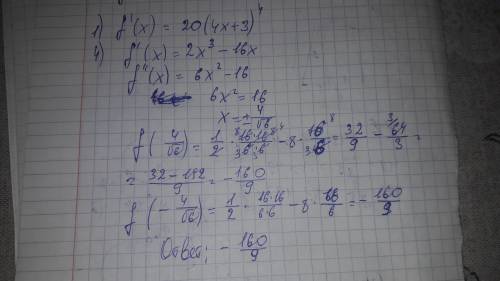 1) f'(x) = 20(4x+3)^4
4) f'(x) = 2x^3 - 16x
f''(x) = 6x^2 - 16
6x^2 = 16
x = ± 4/√6
f(4/√6) = 1/2 · 16·16/6·6 - 8 · 16/6 = 32/9 - 64/3 =
= 32-192/9 = - 160/9
f(-4/√6) = 1/2 · 16·16/6·6 - 8 · 16/6 = - 160/9
Ответ: - 160/9